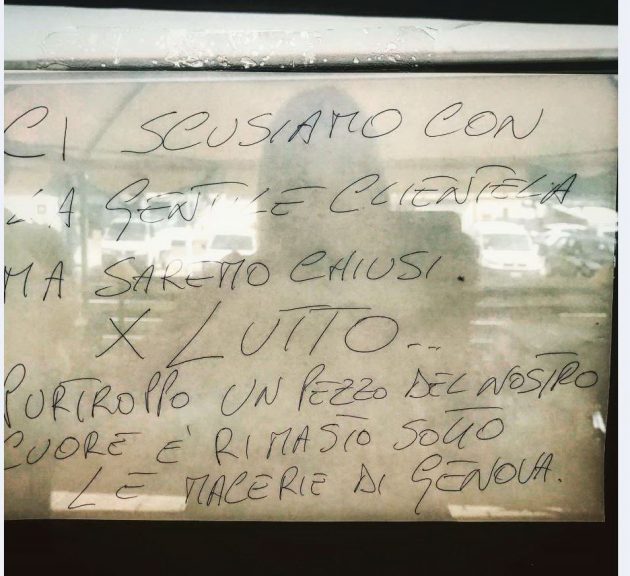 CI SCUSIAMO CON
LA GENTILE CLIENTELA
MA SAREMO CHIUSI.
X LUTTO...
PURTROPPO UN PEZZO DEL NOSTRO
CUORE E' RIMASTO SOTTO
LE MACERIE DI GENOVA.